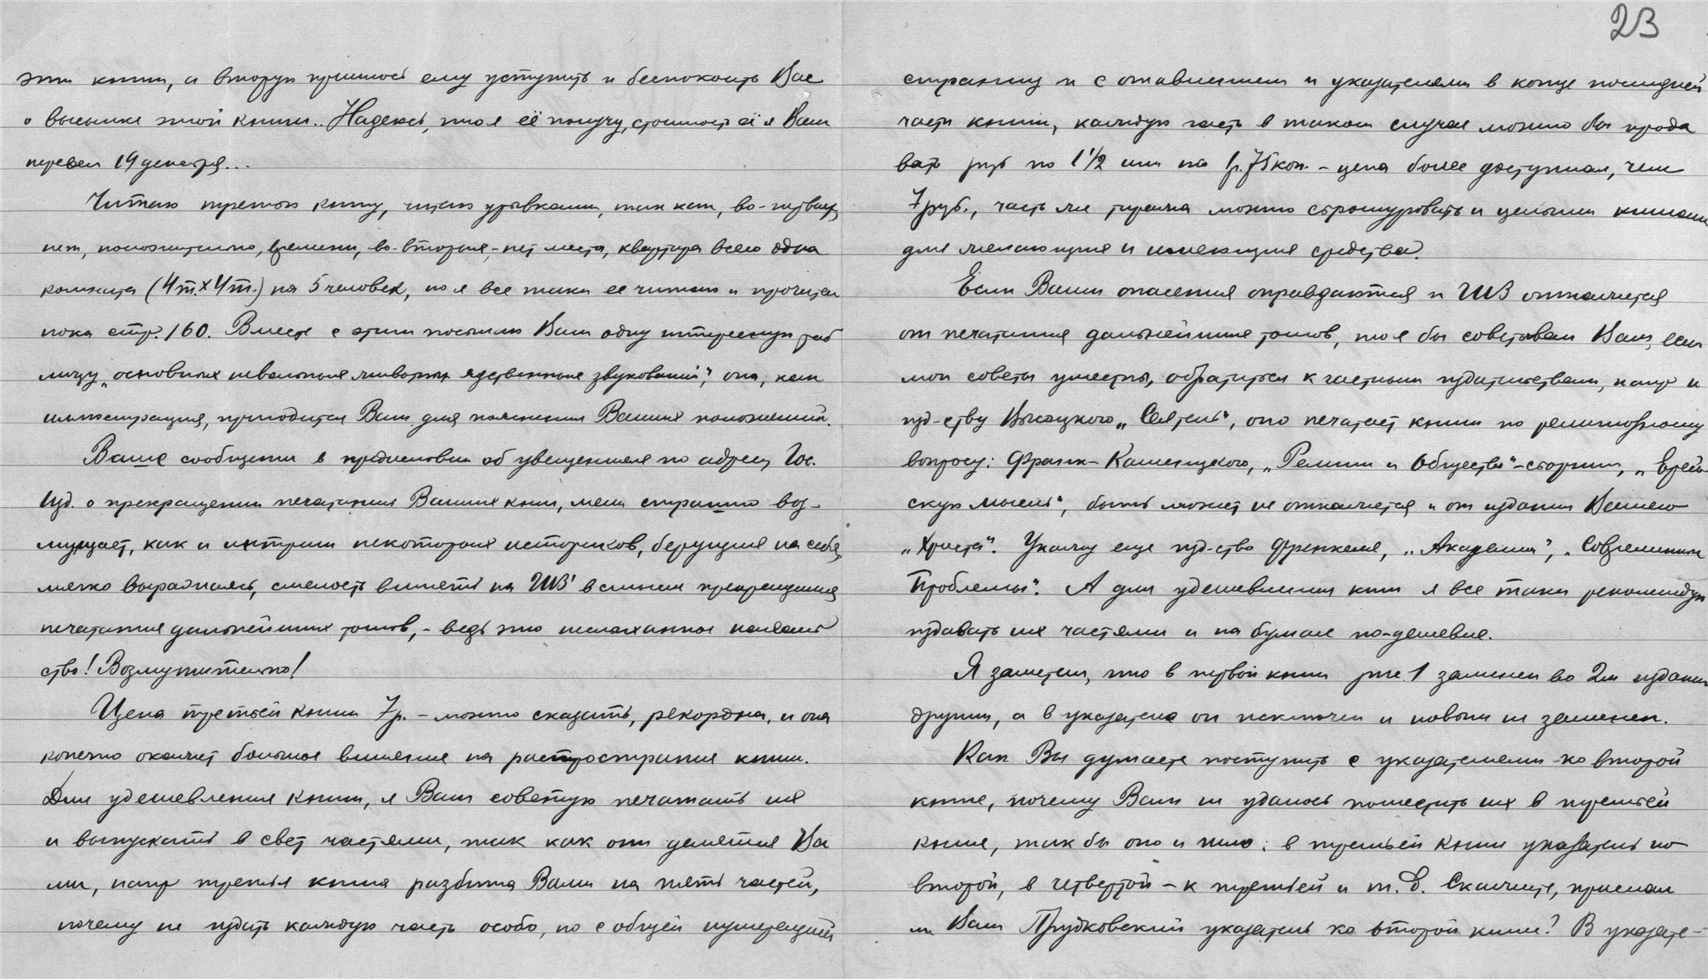 эти книги, а вторую пришлось ему уступить и беспокоить Вас
о высылке этой книги.. Надеюсь, что я её получу, стоимость её я Вам
перевел 19 декабря...
Читаю третью книгу, читаю урывками, так как, во-первых,
нет, положительно, времени, во-вторых, - нет места, квартира всего одна
комната (4m.x4m.) на 5 человек, но я все таки ее читаю и прочитал
пока стр. 160. Вместе с этим посылаю Вам одну интересную таб
лицу „основных невольных звукований", она, как
иллюстрация, пригодится Вам для пояснения Ваших положений.
Ваше сообщение в предисловии об увещеваниях по адресу Гос.
Изд. о прекращении печатания Ваших книг, меня страшно воз-
мущает, как и интриги некоторых историков, берущих на себя,
мягко выражаясь, смелость влиять на ГИЗ в смысле прекращения
печатания дальнейших томов, - ведь это неслыханное нахаль
ство! Возмутительно!
Цена третьей книги 7р. - можно сказать, рекордная, и она
конечно окажет большое влияние на распространение книги.
Для удешевления книги, я Вам советую печатать их
и выпускать в свет частями, так как они делятся Ва
ми, напр третья книга разбита Вами на пять частей,
почему не издать каждую часть особо, но с общей нумерацией
23
страниц и с оглавлением и указателями в конце последней
части книги, каждую часть в таком случае можно бы прода
вать руб по 1 1/2 или по 1р.75коп. - цена более доступная, чем
7руб., часть же тиража можно сброшуровать и целыми книгами
для желающих и имеющих средства.
Если Ваши опасения оправдаются и ГИЗ откажется
от печатания дальнейших томов, то я бы советовал Вам, если
мои советы уместны, обратиться к частным издательствам, напр к
изд-ству Высоцкого „Сеятель", оно печатает книги по религиозному
вопросу: Франк-Каменецкого, „Религия и Общество"-сборник, „Еврей
скую мысль", быть может не откажется и от издания Вашего
„Христа". Укажу еще изд-ство Френкеля, „Академия", „Современные
Проблемы". А для удешевления книг я все таки рекомендую
издавать их частями и на бумаге по-дешевле.
Я заметил, что в первой книге рис. 1 заменен во 2м издании
другим, а в указателе он исключен и новым не заменен.
Как Вы думаете поступить с указателями ко второй
книге, почему Вам не удалось поместить их в третьей
книге, так бы оно и шло: в третьей книге указатель ко
второй, в четвертой - к третьей и т.д. Скажите, прислал
ли Вам Прудковский указатель ко второй книге? В указате-